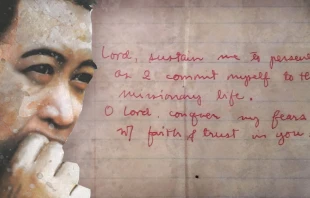 Lord, sustain me to perseve
as I commit myself to th
missionary life.
O Lord, conquer my fears
w/ faith & trust in you